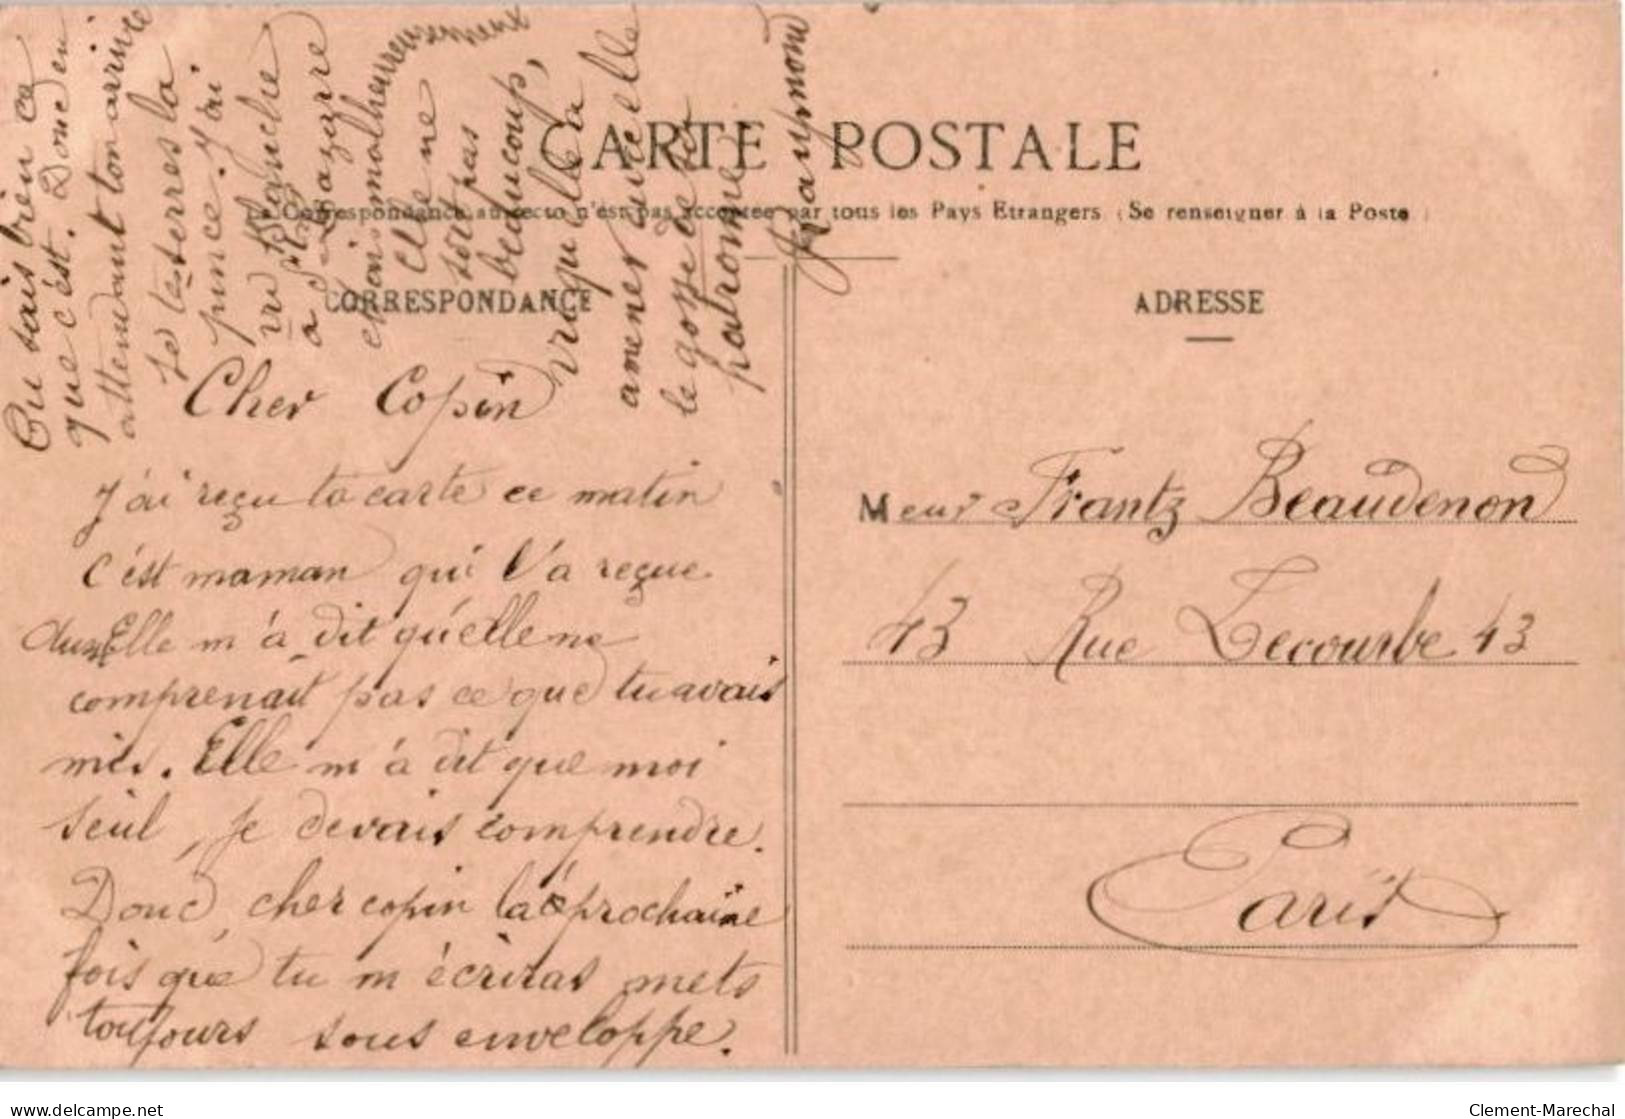 CARTE POSTALE
La Correspondance au recto n'est pas acceptée par tous les Pays Etrangers (Se renseigner à la Poste)
CORRESPONDANCE
Cher Copin
J'ai reçu ta carte ce matin
c'est maman qui l'a reçue
Elle m'a dit qu'elle ne
comprenait pas ce que tu avais
mis. Elle m'a dit que moi
seul, je devais comprendre.
Donc, cher copin la prochaine
fois que tu m'écriras mets
toujours sous enveloppe.
Tu sais bien ce
que c'est. Donc en
attendant ton arrivée
Je te serres la
pince. J'ai
vu Blanche
à St Lazarre
mais malheureusement
Elle ne
sort pas
beaucoup,
vu qu'elle a
amener avec elle
le gosse de sa
patronne
Raymond
ADRESSE
Meur Frantz Beaudenon
43 Rue Lecourbe 43
Paris
delcampe.net
Clement-Marechal